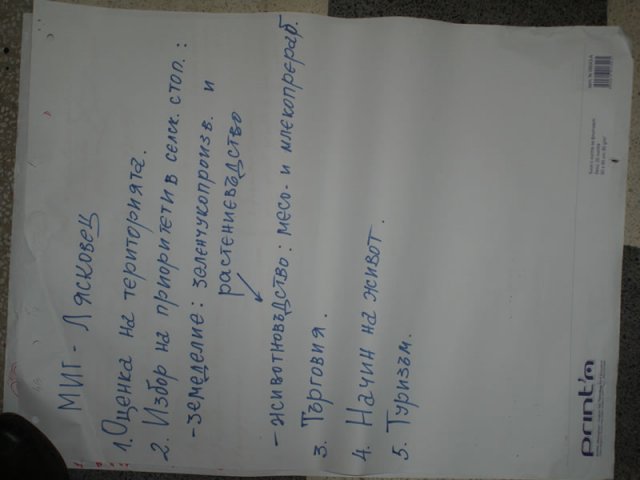 МИГ - Лясковец
1. Оценка на територията.
2. Избор на приоритети в селск. стоп. :
- земеделие: зеленчукопроизв. и
растениевъдство
- животновъдство: месо- и млекопрераб.
3. Търговия.
4. Начин на живот.
5. Туризъм.
print'm